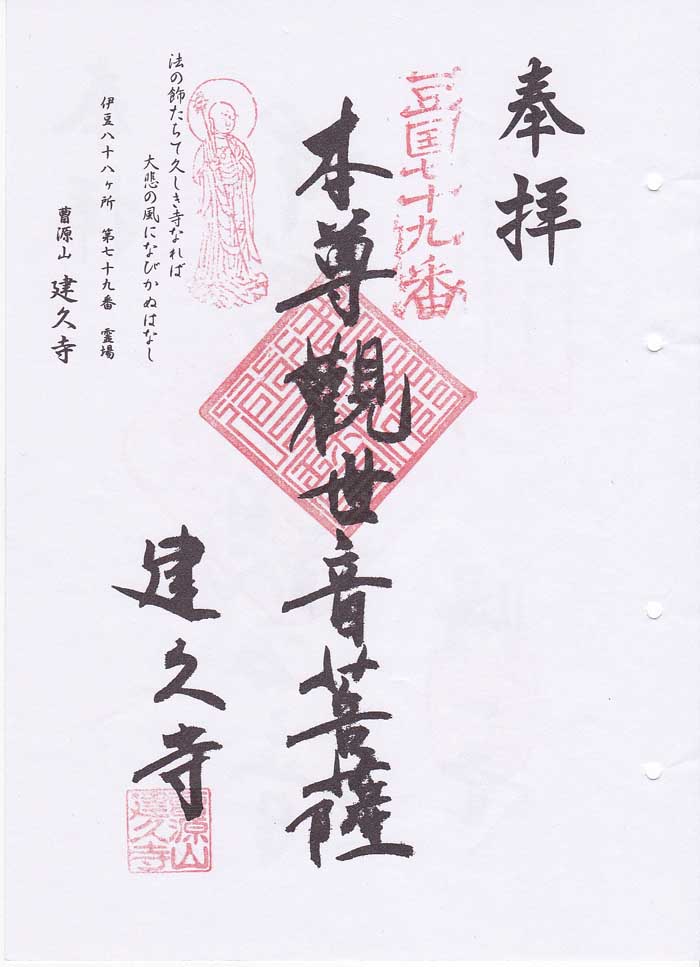 奉拝
豆国七十九番
本尊觀世音菩薩
建久寺
曹源山建久寺
法の飾たちて久しき寺なれば
大悲の風になびかぬはなし
伊豆八十八ヶ所 第七十九番 霊場
曹源山 建久寺